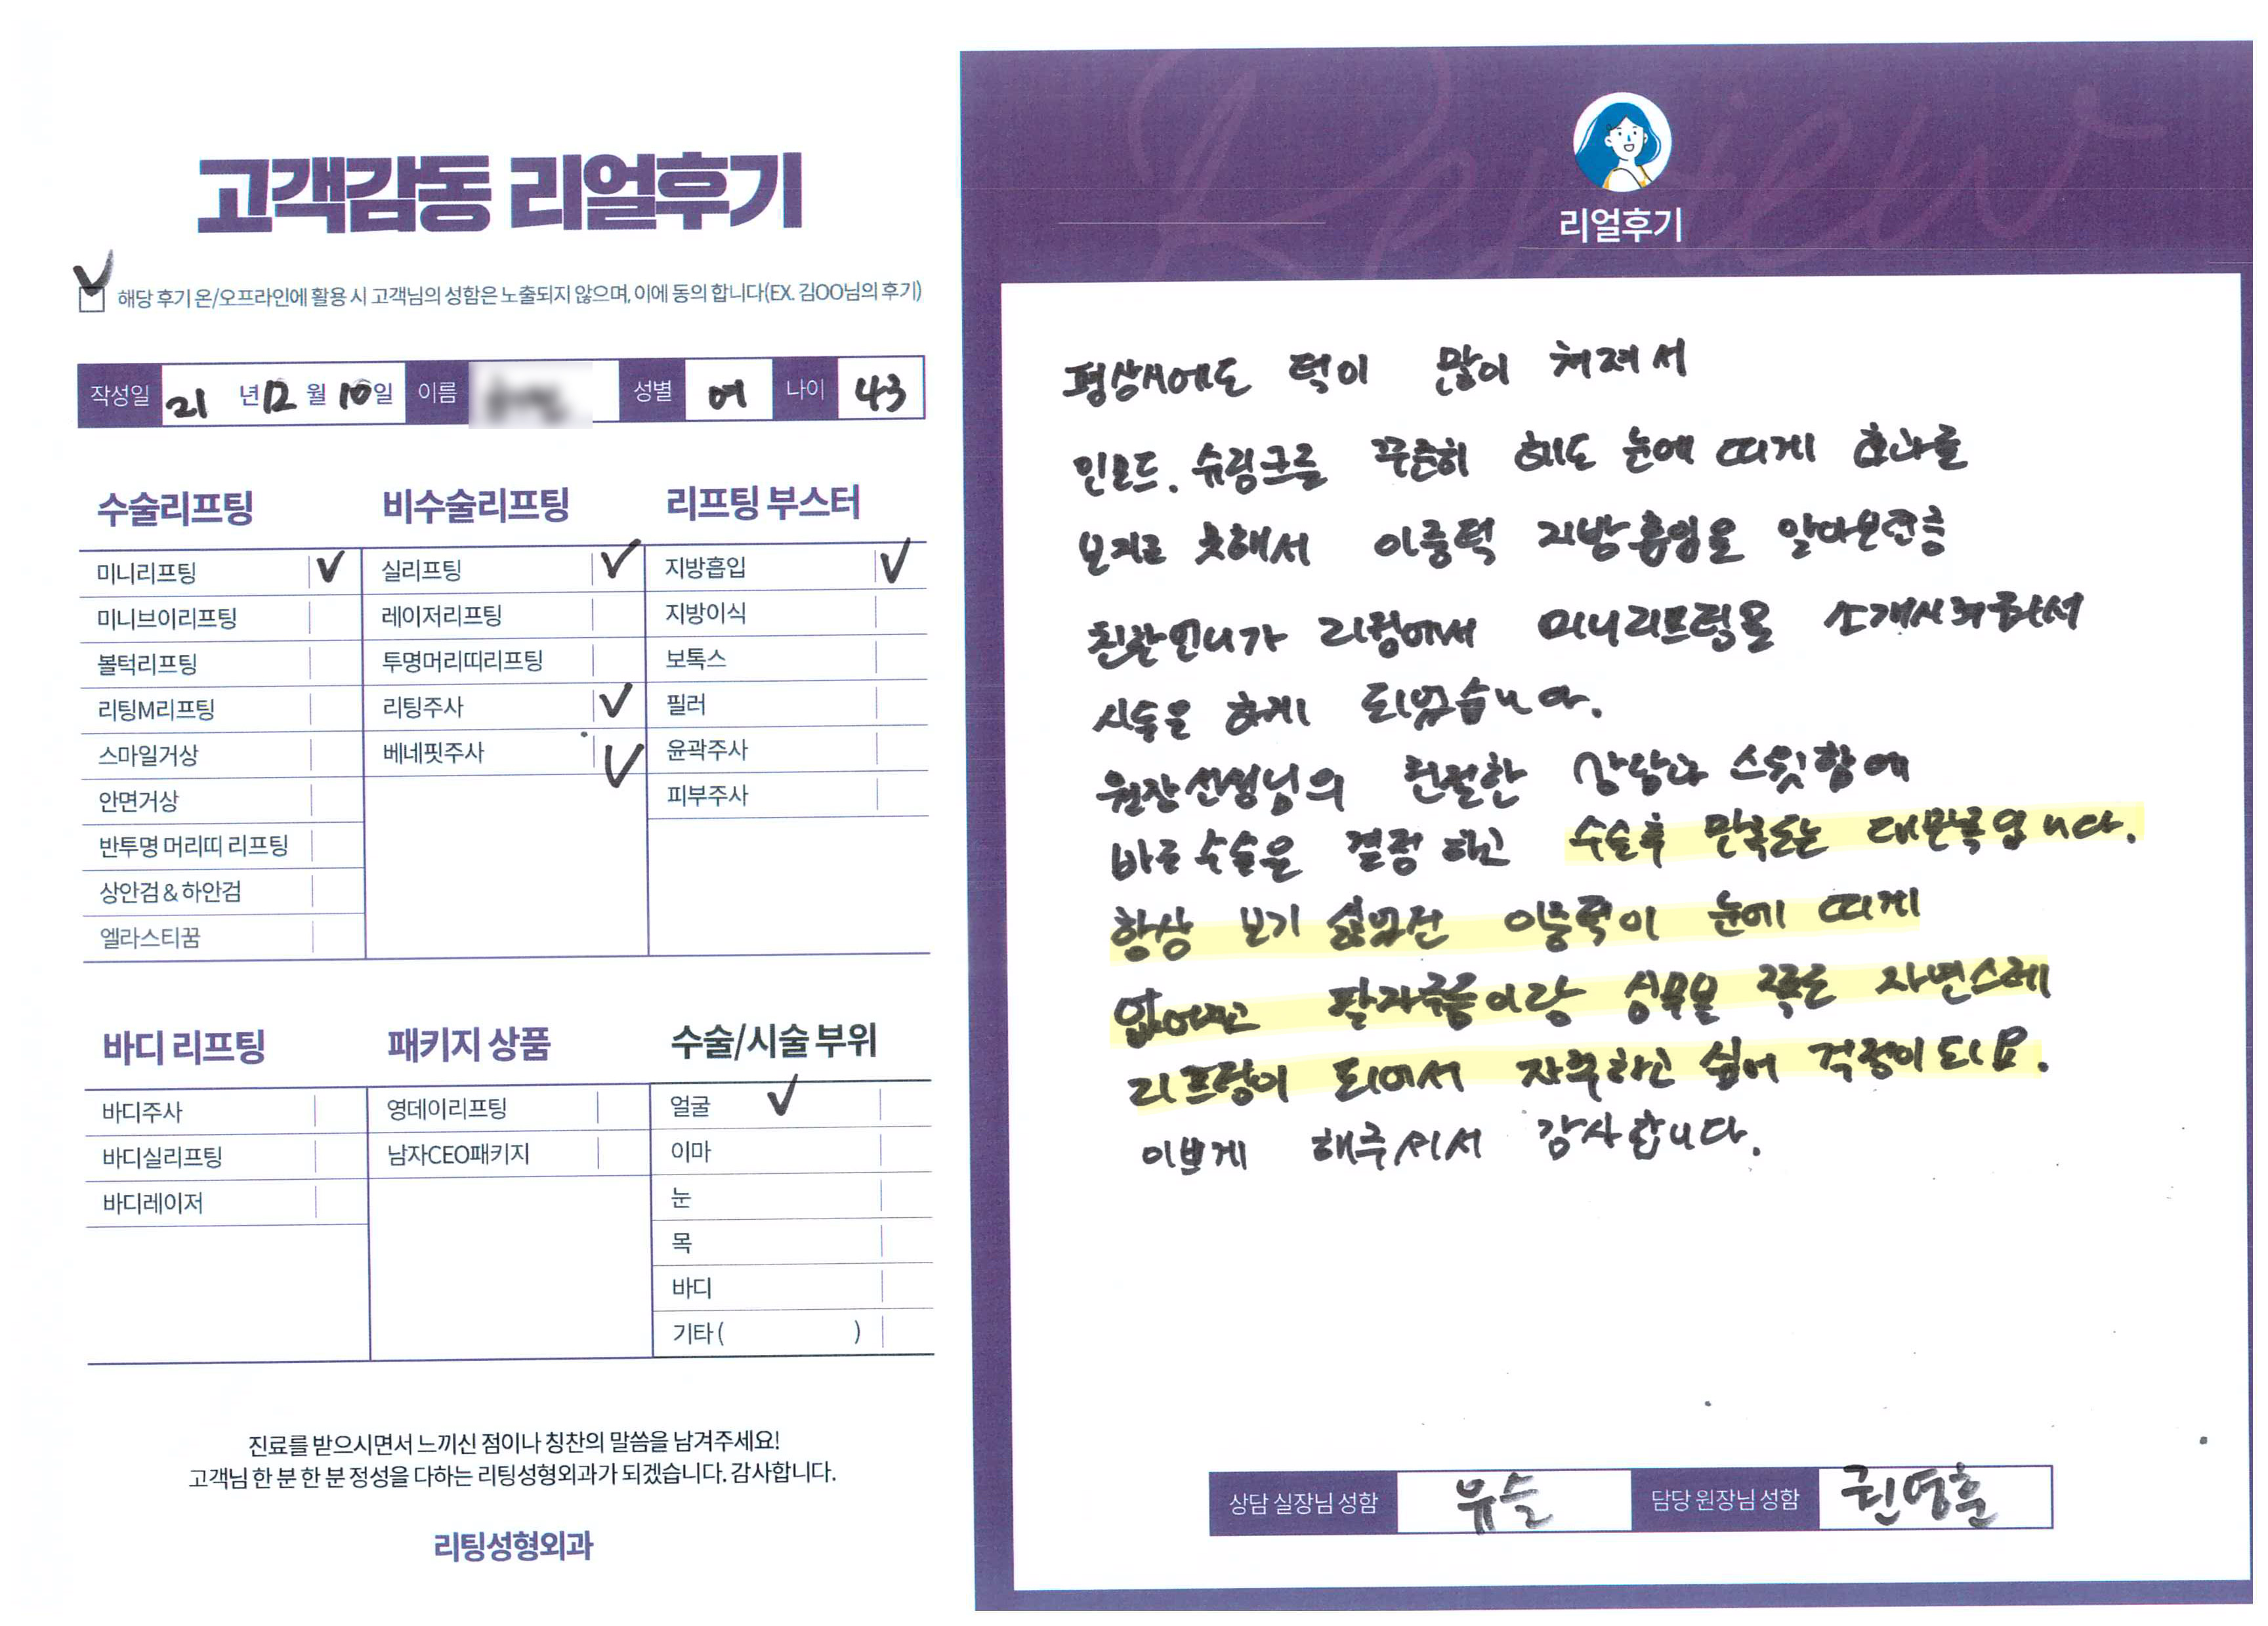 고객감동 리얼후기
해당 후기 온/오프라인에 활용 시 고객님의 성함은 노출되지 않으며, 이에 동의 합니다(EX. 김OO님의 후기)
작성일 21 년 12 월 10일 이름 성별 여 나이 43
수술리프팅 비수술리프팅 리프팅 부스터
미니리프팅 실리프팅 지방흡입
미니브이리프팅 레이저리프팅 지방이식
볼턱리프팅 투명머리띠리프팅 보톡스
리팅M리프팅 리팅주사 필러
스마일거상 베네핏주사 윤곽주사
안면거상 피부주사
반투명 머리띠 리프팅
상안검 & 하안검
엘라스티꿈
바디 리프팅 패키지 상품 수술/시술 부위
바디주사 영데이리프팅 얼굴
바디실리프팅 남자CEO패키지 이마
바디레이저 눈
목
바디
기타 ( )
진료를 받으시면서 느끼신 점이나 칭찬의 말씀을 남겨주세요!
고객님 한 분 한 분 정성을 다하는 리팅성형외과가 되겠습니다. 감사합니다.
리팅성형외과
Review
리얼후기
평상시에도 턱이 많이 쳐져서
인모드. 슈링크를 꾸준히 해도 눈에 띠게 효과를
보지로 못해서 이중턱 지방흡입을 알아본던중
친한언니가 리팅에서 미니리프팅을 소개시켜줘서
시술을 하게 되었습니다.
원장선생님의 친절한 상담과 스윗함에
바로 수술을 결정 하고 수술후 만족도는 대만족입니다.
항상 보기 싫었던 이중턱이 눈에 띠게
없어지고 팔자주름이랑 심부볼 쪽도 자연스레
리프팅이 되어서 자꾸하고 싶어 걱정이되요.
이쁘게 해주셔서 감사합니다.
상담 실장님 성함 유슬 담당 원장님 성함 권영훈